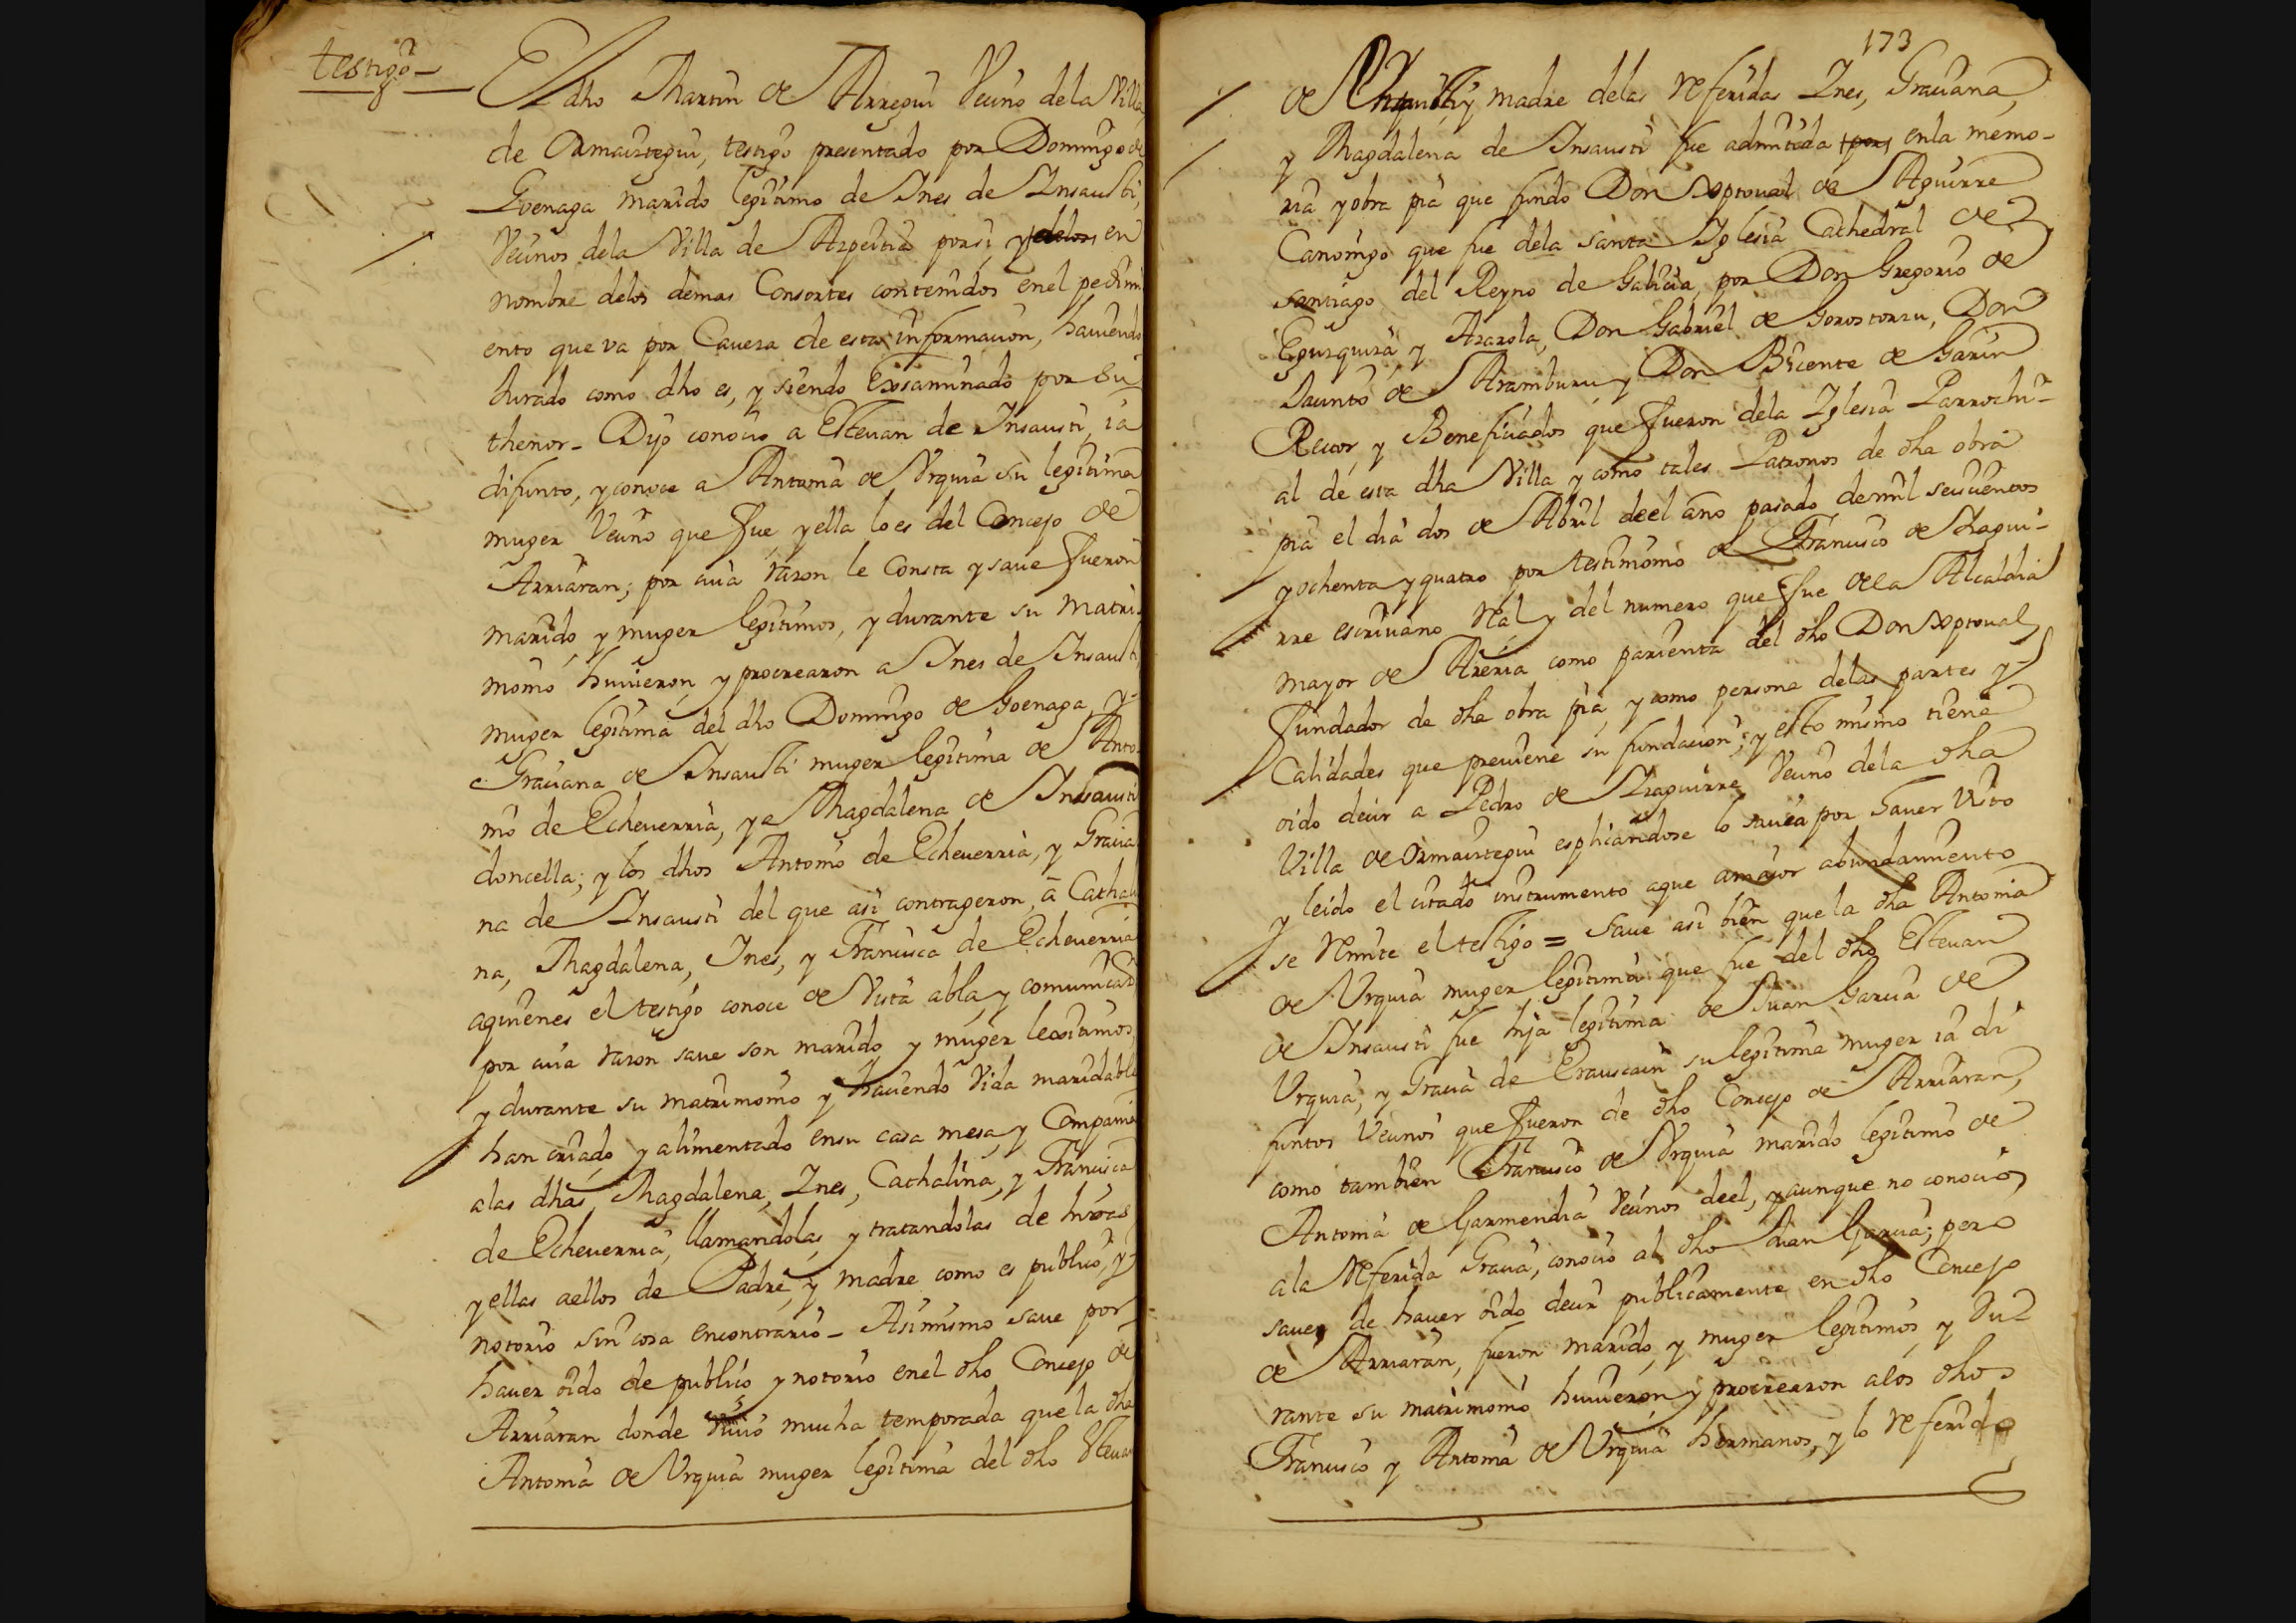 testigo
El dho Martin de Arregui Vecino de la Villa
de Ormaiztegui, testigo presentado por Domingo de
Goenaga marido legitimo de Ines de Insausti,
Vecinos dela Villa de Azpeitia por si, y delos en
nombre delos demas Consortes contenidos enel pedimi
ento que va por Cavera de esta informacion, haviendo
Jurado como dho es, y siendo Exsaminado por su
thenor - Dijo conocio a Estevan de Insausti, ia
difunto, y conoce a Antonia de Vrquia su legitima
muger Vecino que fue, y ella lo es del Concejo de
Arriaran; por cuia razon le Consta y save fueron
marido y muger legitimos, y durante su Matri-
monio huvieron y procrearon a Ines de Insausti
muger legitima del dho Domingo de Goenaga, y
Graciana de Insausti muger legitima de Anto-
nio de Echeverria, y a Magdalena de Insausti
doncella; y los dhos Antonio de Echeverria, y Gracia
na de Insausti del que asi contrageron, a Cathali
na, Magdalena, Ines, y Francisca de Echeverria
aquienes el testigo conoce de Vista abla, y comunicacion
por cuia razon save son marido y muger lexitimos,
y durante su matrimonio y haciendo Vida maridable
han criado y alimentado ensu casa mesa y Compania
alas dhas Magdalena, Ines, Cathalina, y Francisca
de Echeverria, llamandolas y tratandolas de hijas
y ellas aellos de Padre, y madre como es publico, y
notorio sin cosa encontrario - Asimismo save por
haver oido de publico y notorio enel dho Concejo de
Arriaran donde vivio mucha temporada que la dha
Antonia de Vrquia muger legitima del dho Estevan
173
de Insausti, y madre delas referidas Ines, Graciana,
y Magdalena de Insausti fue admitida por enla memo-
ria y obra pia que fundo Don Xptoval de Aguirre
Canonigo que fue dela santa Iglesia Cathedral de
santiago del Reyno de Galicia, por Don Gregorio de
Egurquiza y Ararola, Don Gabriel de Gorostorzu, Don
Jacinto de Aramburu, y Don Bicente de Garin
Rector, y Beneficiados que fueron dela Iglesia Parrochi-
al de esta dha Villa y como tales Patronos de dha obra
pia el dia dos de Abril deel ano pasado demil seiscientos
y ochenta y quatro por testimonio de Francisco de Izagui-
rre escrivano Real y del numero que fue dela Alcaldia
mayor de Areria como parienta del dho Don Xptoval
fundador de dha obra pia, y como persona delas partes y
Calidades que previene su fundacion; y esto mismo tiene
oido decir a Pedro de Izaguirre Vecino dela dha
Villa de Ormaiztegui esplicandose lo savia por haver Visto
y leido el citado instrumento aque amaior abundamiento
se remite el testigo = Save asi bien que la dha Antonia
de Vrquia muger legitima que fue del dho Estevan
de Insausti fue hija legitima de Juan Garcia de
Vrquia, y Gracia de Erauscain su legitima muger ia di
funtos Vecinos que fueron de dho Concejo de Arriaran,
como tambien Francisco de Vrquia marido legitimo de
Antonia de Garmendia Vecinos deel, y aunque no conocio
ala referida Gracia, conocio al dho Juan Garcia; pero
save de haver oido decir publicamente en dho Concejo
de Arriaran, fueron marido, y muger legitimos, y du
rante su matrimonio huvieron y procrearon alos dhos
Francisco y Antonia de Vrquia hermanos, y lo referido